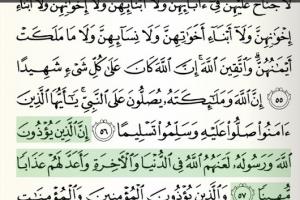 لَّا جُنَاحَ عَلَيْهِنَّ فِىٓ ءَابَآئِهِنَّ وَلَآ أَبْنَآئِهِنَّ وَلَآ إِخْوَٰنِهِنَّ وَلَآ أَبْنَآءِ
إِخْوَٰنِهِنَّ وَلَآ أَبْنَآءِ أَخَوَٰتِهِنَّ وَلَا نِسَآئِهِنَّ وَلَا مَا مَلَكَتْ
أَيْمَٰنُهُنَّ ۗ وَٱتَّقِينَ ٱللَّهَ ۚ إِنَّ ٱللَّهَ كَانَ عَلَىٰ كُلِّ شَىْءٍ شَهِيدًا
٥٥ إِنَّ ٱللَّهَ وَمَلَٰٓئِكَتَهُۥ يُصَلُّونَ عَلَى ٱلنَّبِىِّ ۚ يَٰٓأَيُّهَا ٱلَّذِينَ
ءَامَنُوا۟ صَلُّوا۟ عَلَيْهِ وَسَلِّمُوا۟ تَسْلِيمًا ٥٦ إِنَّ ٱلَّذِينَ يُؤْذُونَ
ٱللَّهَ وَرَسُولَهُۥ لَعَنَهُمُ ٱللَّهُ فِى ٱلدُّنْيَا وَٱلْءَاخِرَةِ وَأَعَدَّ لَهُمْ عَذَابًا
مُّهِينًا ٥٧ وَٱلَّذِينَ يُؤْذُونَ ٱلْمُؤْمِنِينَ وَٱلْمُؤْمِنَٰتِ